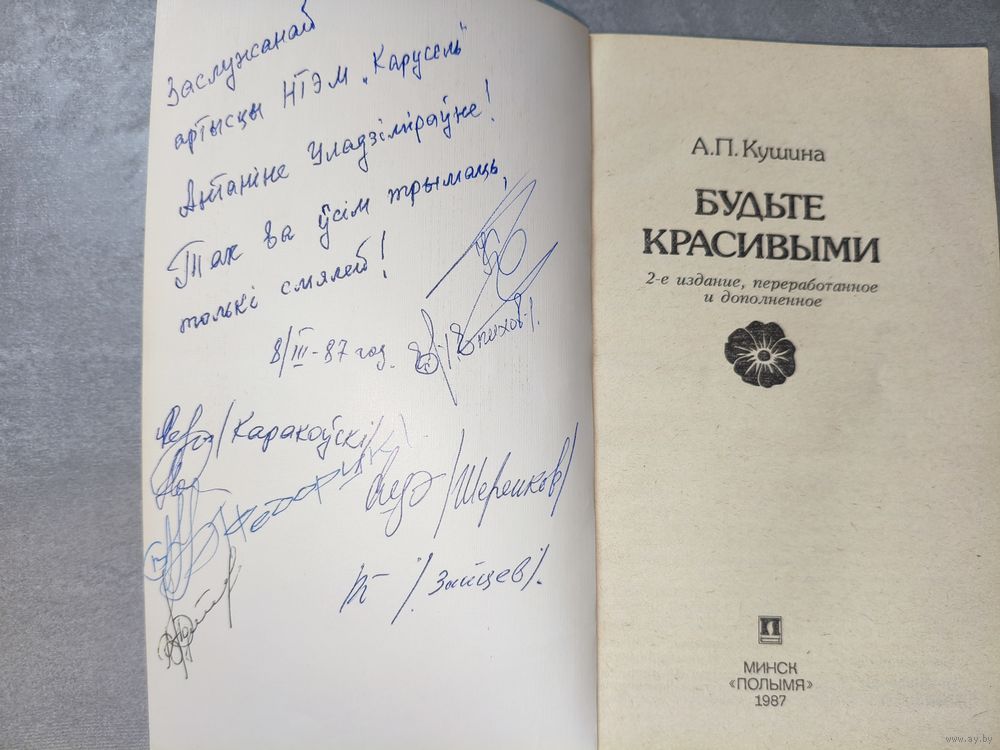 Заслужанай
артысцы НТЭМ „Карусель"
Антаніне Уладзіміраўне!
Так ва ўсім трымаць,
толькі смялей!
8/III-87 год.
/Каракоўскі/
/Зайцев/.
А.П.Кушина
БУДЬТЕ
КРАСИВЫМИ
2-е издание, переработанное
и дополненное
МИНСК
«ПОЛЫМЯ»
1987
www.ay.by